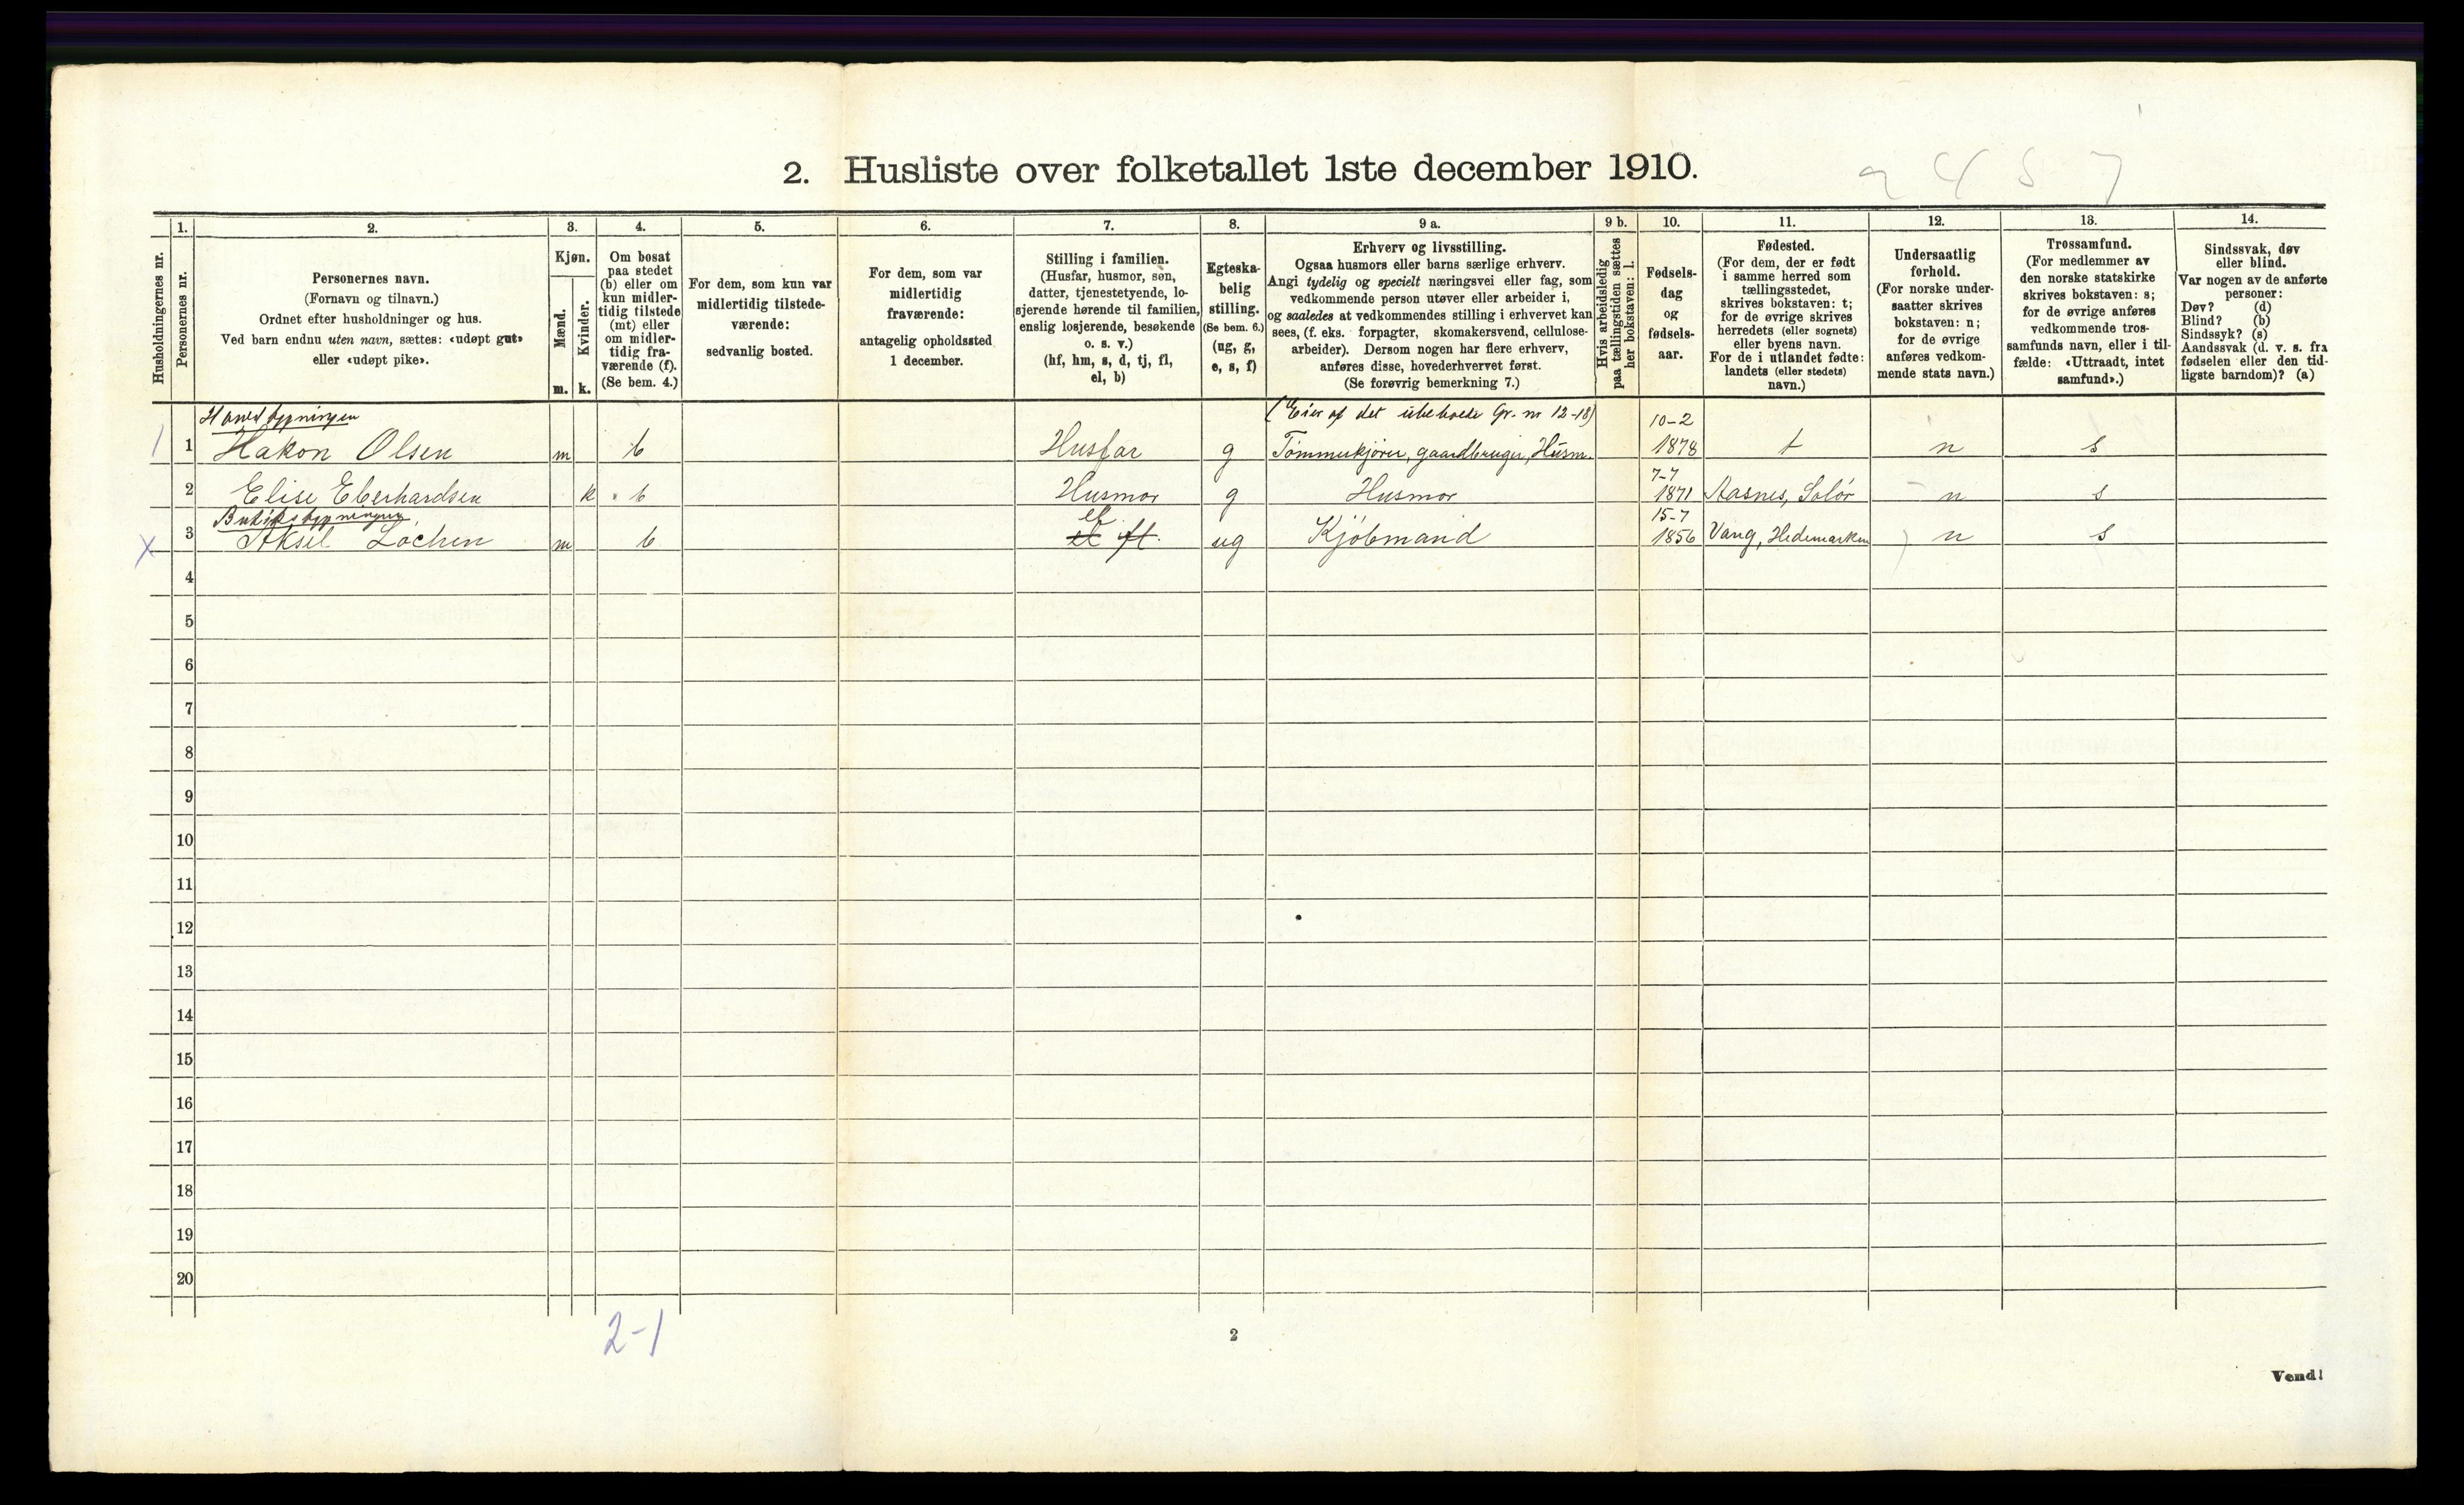 2. Husliste over folketallet 1ste december 1910.
1. 2. 3. 4. 5. 6. 7. 8. 9 a. 9 b. 10. 11. 12. 13. 14.
Husholdningernes nr.
Personernes nr.
Personernes navn.
(Fornavn og tilnavn.)
Ordnet efter husholdninger og hus.
Ved barn endnu uten navn, sættes: «udøpt gut»
eller «udøpt pike».
Kjøn.
Mænd.
m.
Kvinder.
k.
Om bosat
paa stedet
(b) eller om
kun midler-
tidig tilstede
(mt) eller
om midler-
tidig fra-
værende (f).
(Se bem. 4.)
For dem, som kun var
midlertidig tilstede-
værende:
sedvanlig bosted.
For dem, som var
midlertidig
fraværende:
antagelig opholdssted
1 december.
Stilling i familien.
(Husfar, husmor, søn,
datter, tjenestetyende, lo-
sjerende hørende til familien,
enslig losjerende, besøkende
o. s. v.)
(hf, hm, s, d, tj, fl,
el, b)
Egteska-
belig
stilling.
(Se bem. 6.)
(ug, g,
e, s, f)
Erhverv og livsstilling.
Ogsaa husmors eller barns særlige erhverv.
Angi tydelig og specielt næringsvei eller fag, som
vedkommende person utøver eller arbeider i,
og saaledes at vedkommendes stilling i erhvervet kan
sees, (f. eks. forpagter, skomakersvend, cellulose-
arbeider). Dersom nogen har flere erhverv,
anføres disse, hovederhvervet først.
(Se forøvrig bemerkning 7.)
Hvis arbeidsledig
paa tællingstiden sættes
her bokstaven: l.
Fødsels-
dag
og
fødsels-
aar.
Fødested.
(For dem, der er født
i samme herred som
tællingsstedet,
skrives bokstaven: t;
for de øvrige skrives
herredets (eller sognets)
eller byens navn.
For de i utlandet fødte:
landets (eller stedets)
navn.)
Undersaatlig
forhold.
(For norske under-
saatter skrives
bokstaven: n;
for de øvrige
anføres vedkom-
mende stats navn.)
Trossamfund.
(For medlemmer av
den norske statskirke
skrives bokstaven: s;
for de øvrige anføres
vedkommende tros-
samfunds navn, eller i til-
fælde: «Uttraadt, intet
samfund».)
Sindssvak, døv
eller blind.
Var nogen av de anførte
personer:
Døv? (d)
Blind? (b)
Sindssyk? (s)
Aandssvak (d. v. s. fra
fødselen eller den tid-
ligste barndom)? (a)
Hovedbygningen (Eier af det ubeboede Gr. nr 12-18) 10-2
1 1 Hakon Olsen m b Husfar g Tømmerkjører, gaardbruger, Husm. 1878 t n s
7-7
2 Elise Eberhardsen k b Husmor g Husmor 1871 Aasnes, Solør n s
Butiksbygningen el 15-7
x 3 Aksel Løchen m b el fl. ug Kjøbmand 1856 Vang, Hedemarken n s
4
5
6
7
8
9
10
11
12
13
14
15
16
17
18
19
20
2-1
2
Vend!